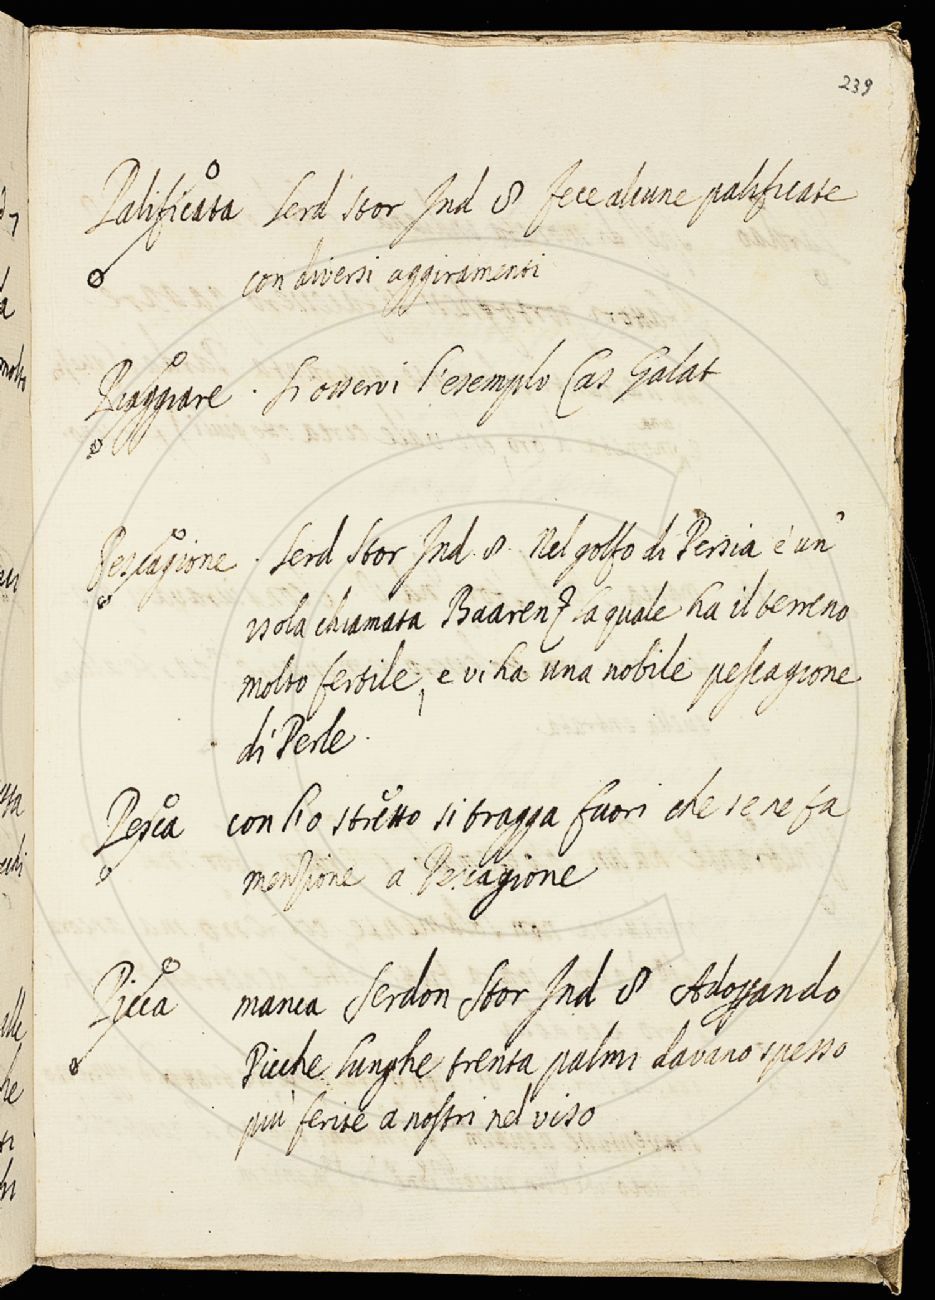 239
Palificata Serd Stor Ind 8 fece alcune palificate
con diversi aggiramenti
Piaggiare . Si osservi l'esemplo Cas Galat
Pescagione . Serd Stor Ind 8. Nel golfo di Persia è un'
isola chiamata Baaren, la quale ha il terreno
molto fertile, e vi ha una nobile pescagione
di Perle.
Pesca con l'o stretto si tragga fuori che se ne fa
menzione a Pescagione
Picca manca Serdon Stor Ind 8 Adoprando
Picche lunghe trenta palmi davano spesso
più ferite a nostri nel viso